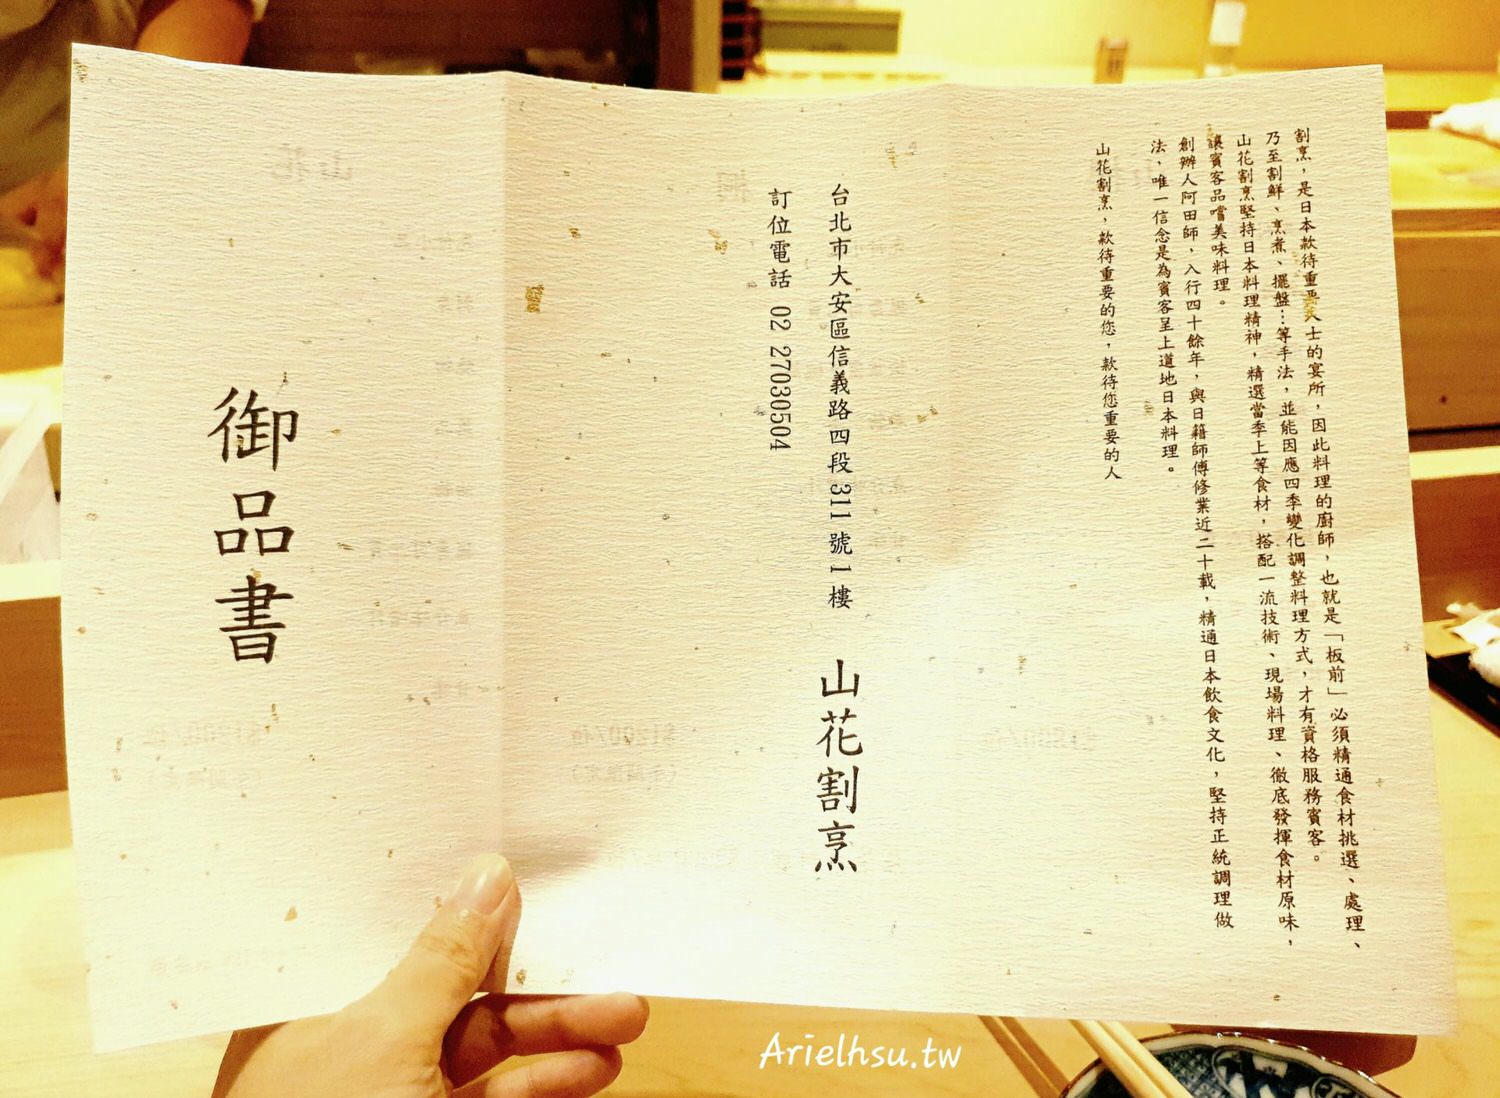 割烹，是日本款待重要人士的宴所，因此料理的廚師，也就是「板前」必須精通食材挑選、處理、
乃至割鮮、烹煮、擺盤…等手法，並能因應四季變化調整料理方式，才有資格服務賓客。
山花割烹堅持日本料理精神，精選當季上等食材，搭配一流技術、現場料理、徹底發揮食材原味，
讓賓客品嚐美味料理。
創辦人阿田師，入行四十餘年，與日籍師傅修業近二十載，精通日本飲食文化，堅持正統調理做
法，唯一信念是為賓客呈上道地日本料理。
山花割烹，款待重要的您，款待您重要的人
台北市大安區信義路四段311號1樓
山花割烹
訂位電話 02 27030504
御品書
Arielhsu.tw